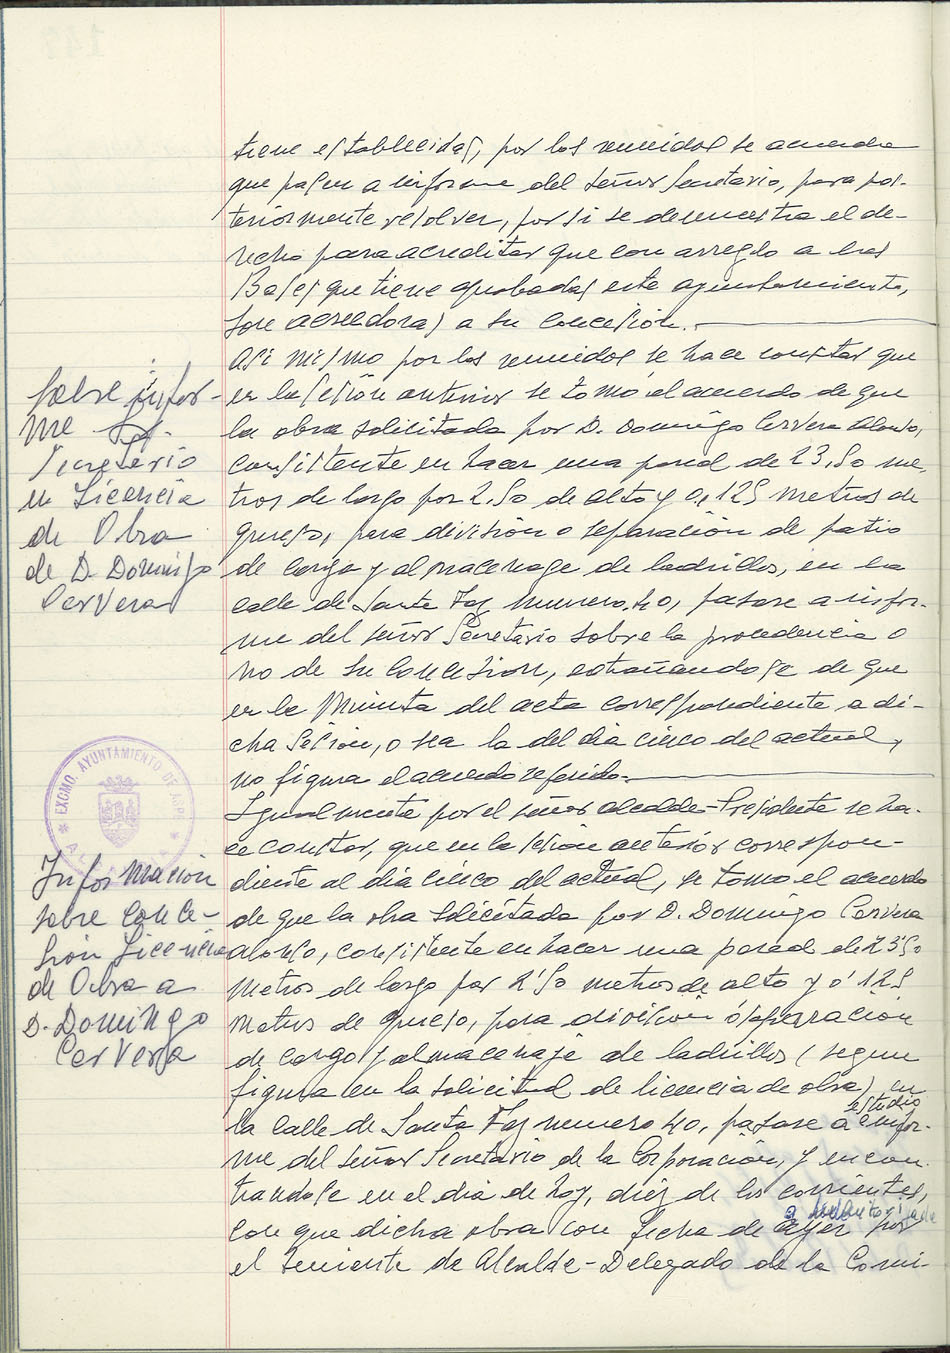 tiene establecidas, por los reunidos se acuerda
que pasen a informe del señor Secretario, para pos-
teriormente resolver, por si se demuestra el de-
recho para acreditar que con arreglo a las
Bases que tiene aprobadas este ayuntamiento,
son acreedoras a su concesión.
Asi mismo por los reunidos se hace constar que
en la sesión anterior se tomó el acuerdo de que
la obra solicitada por D. Domingo Cervera Alonso,
consistente en hacer una pared de 23,50 me-
tros de largo por 2,50 de alto y 0,125 metros de
grueso, para división o separación de patio
de carga y almacenage de ladrillos, en la
calle de Santa Faz numero 40, pasase a infor-
me del señor Secretario sobre la procedencia o
no de su concesion, extrañandose de que
en la Minuta del acta correspondiente a di-
cha Sesion, o sea la del dia cinco del actual,
no figura el acuerdo referido.
Igualmente por el señor alcalde-Presidente se ha-
ce constar, que en la sesion anterior correspon-
diente al dia cinco del actual, se tomo el acuerdo
de que la obra solicitada por D. Domingo Cervera
alonso, consistente en hacer una pared de 23'50
metros de largo por 2'50 metros de alto y 0'125
metros de grueso, para division ó separración
de cargo y almacenaje de ladrillos (segun
figura en la solicitud de licencia de obra) en
la calle de Santa Faz numero 40, pasase a estudio e infor-
me del señor Secretario de la Corporación, y encon-
trandose en el dia de hoy, diez de los corrientes,
con que dicha obra con fecha de ayer autorizada por
el teniente de Alcalde-Delegado de la Comi-
Sobre infor-
me Sr.
Secretario
en Licencia
de Obra
de D. Domingo
Cervera
EXCMO. AYUNTAMIENTO DE ASPE
* ALICANTE *
Información
sobre conce-
sion Licencia
de Obra a
D. Domingo
Cervera